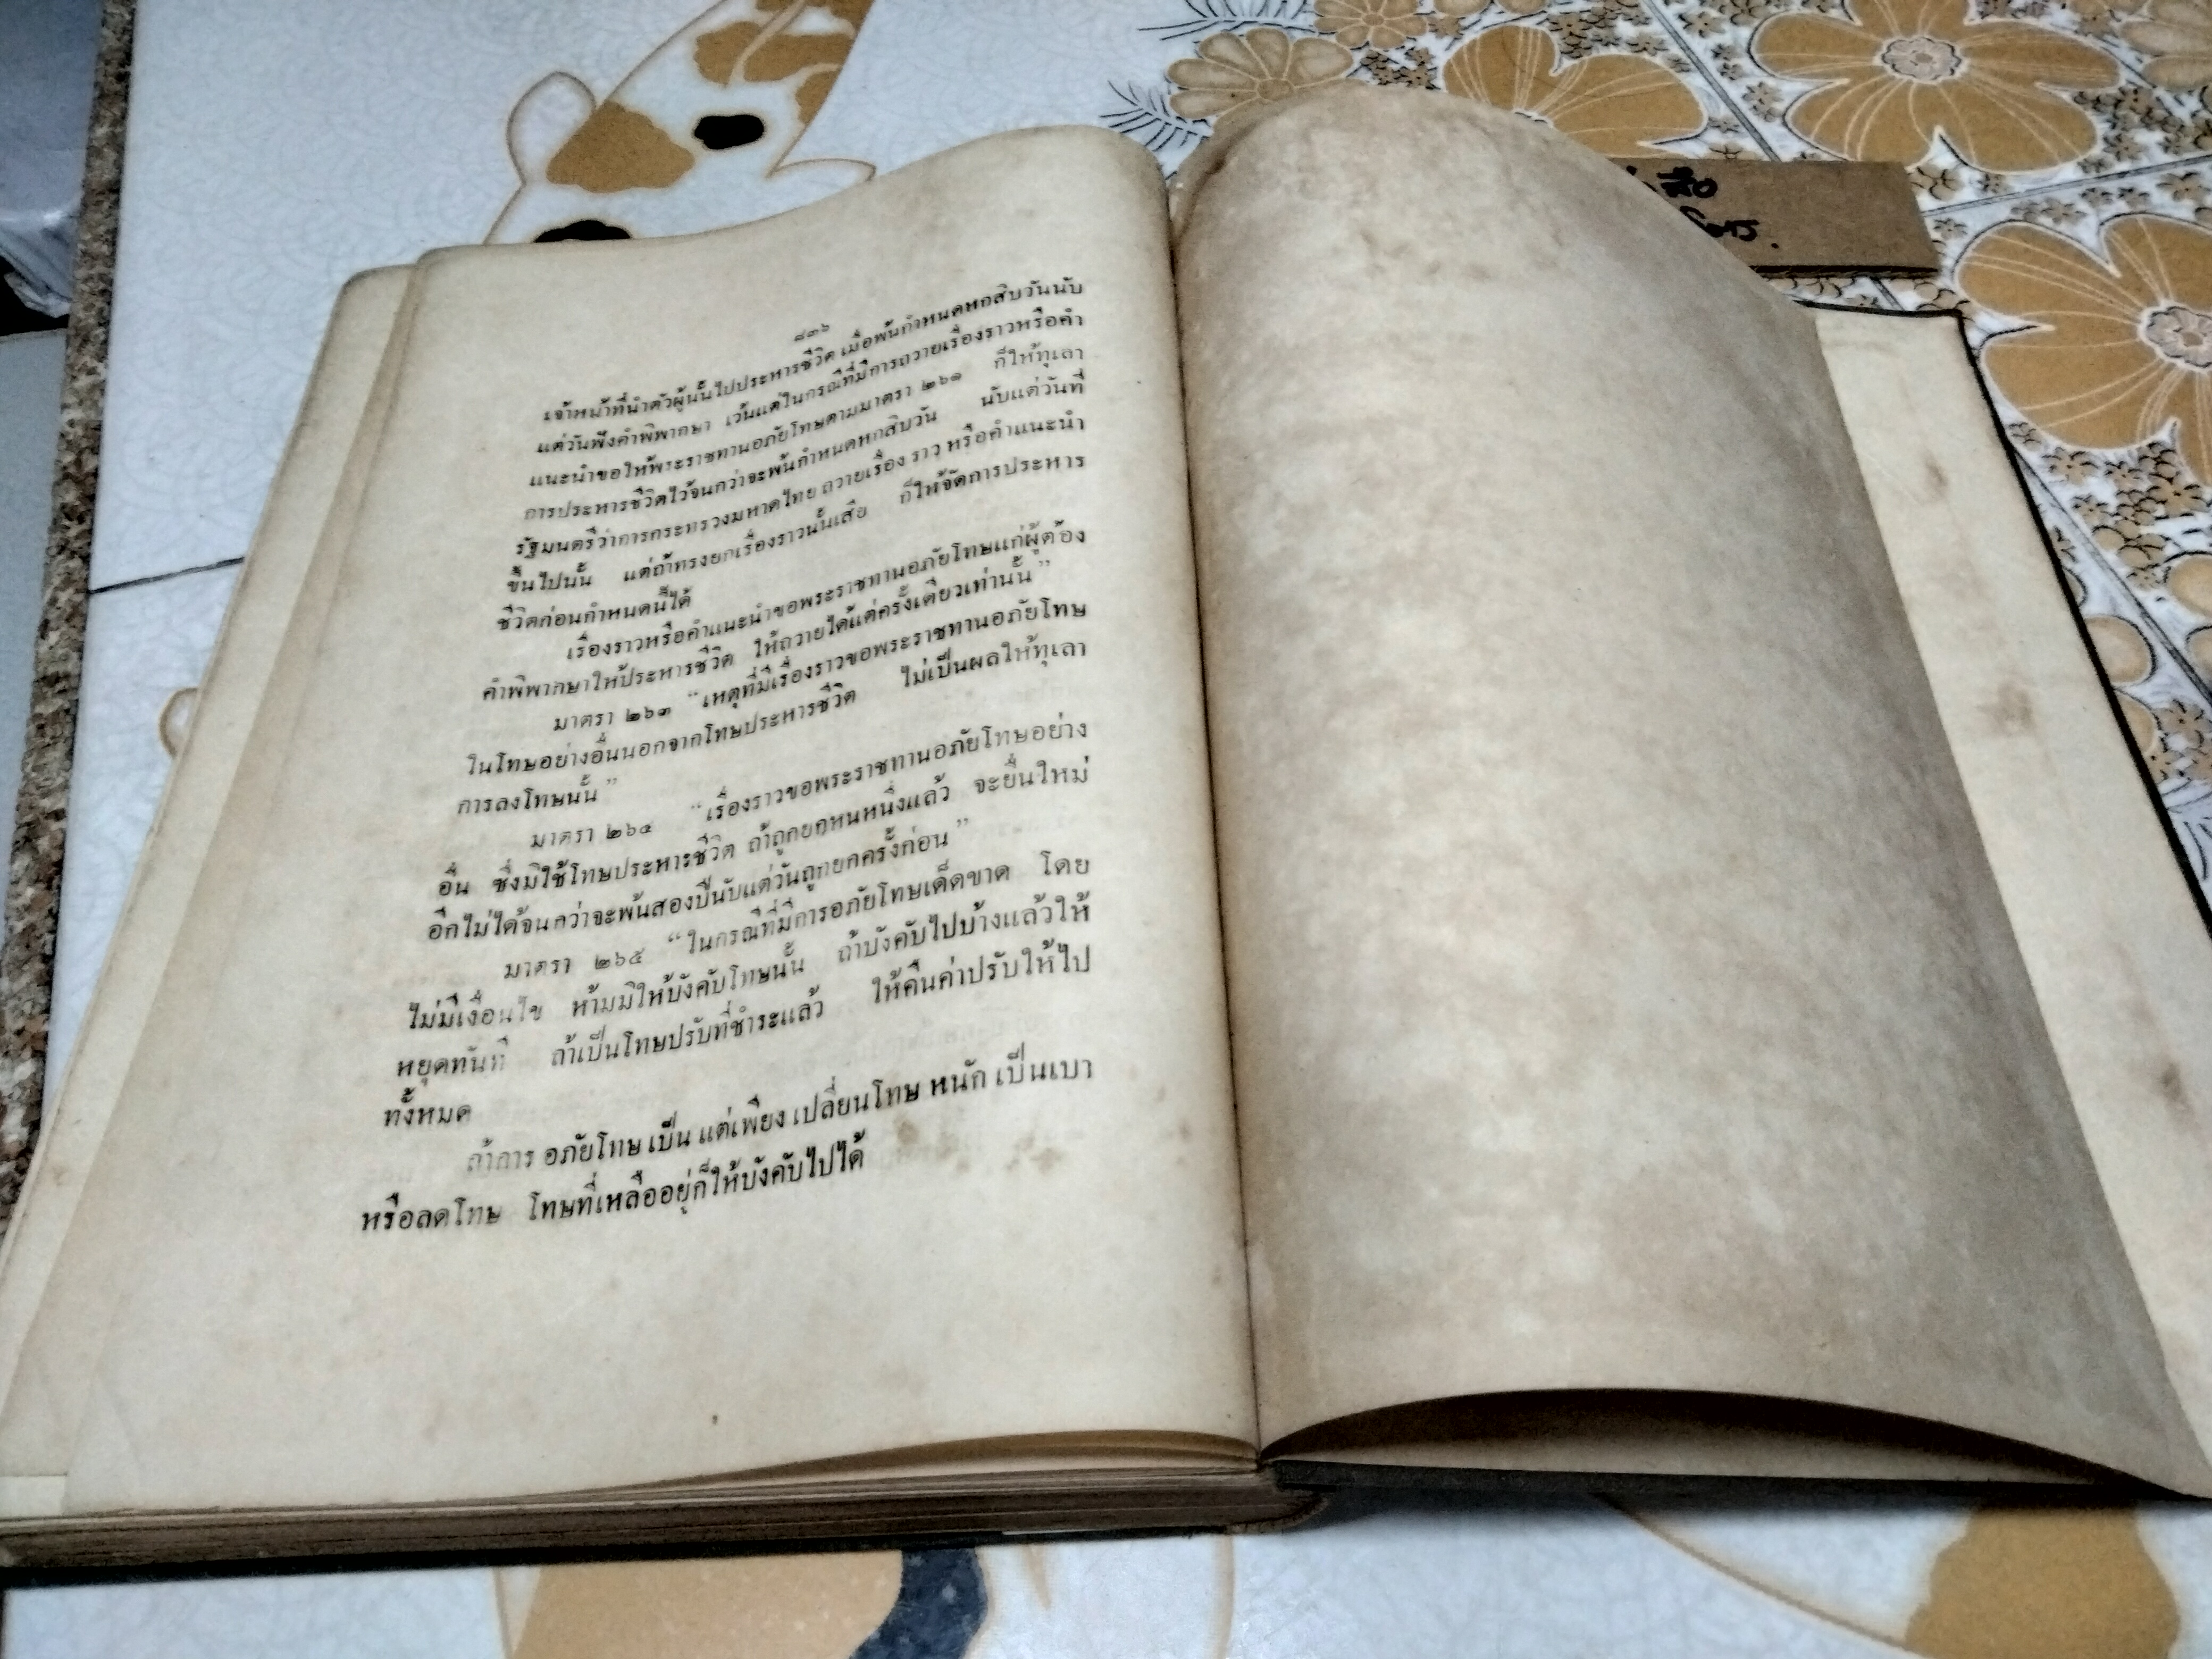 ๘๓๖
เจ้าหน้าที่นำตัวผู้นั้นไปประหารชีวิต เมื่อพ้นกำหนดหกสิบวันนับ
แต่วันฟังคำพิพากษา เว้นแต่ในกรณีที่มีการถวายเรื่องราวหรือคำ
แนะนำขอให้พระราชทานอภัยโทษตามมาตรา ๒๖๑ ก็ให้ทุเลา
การประหารชีวิตไว้จนกว่าจะพ้นกำหนดหกสิบวัน นับแต่วันที่
รัฐมนตรีว่าการกระทรวงมหาดไทย ถวายเรื่อง ราว หรือคำแนะนำ
ขึ้นไปนั้น แต่ถ้าทรงยกเรื่องราวนั้นเสีย ก็ให้จัดการประหาร
ชีวิตก่อนกำหนดนี้ได้
เรื่องราวหรือคำแนะนำขอพระราชทานอภัยโทษแก่ผู้ต้อง
คำพิพากษาให้ประหารชีวิต ให้ถวายได้แต่ครั้งเดียวเท่านั้น”
มาตรา ๒๖๓ “เหตุที่มีเรื่องราวขอพระราชทานอภัยโทษ
ในโทษอย่างอื่นนอกจากโทษประหารชีวิต ไม่เป็นผลให้ทุเลา
การลงโทษนั้น”
มาตรา ๒๖๔ “เรื่องราวขอพระราชทานอภัยโทษอย่าง
อื่น ซึ่งมิใช้โทษประหารชีวิต ถ้าถูกยกหนหนึ่งแล้ว จะยื่นใหม่
อีกไม่ได้จนกว่าจะพ้นสองปีนับแต่วันถูกยกครั้งก่อน”
มาตรา ๒๖๕ “ในกรณีที่มีการอภัยโทษเด็ดขาด โดย
ไม่มีเงื่อนไข ห้ามมิให้บังคับโทษนั้น ถ้าบังคับไปบ้างแล้วให้
หยุดทันที ถ้าเป็นโทษปรับที่ชำระแล้ว ให้คืนค่าปรับให้ไป
ทั้งหมด
ถ้าการ อภัยโทษ เป็น แต่เพียง เปลี่ยนโทษ หนัก เป็นเบา
หรือลดโทษ โทษที่เหลืออยู่ก็ให้บังคับไปได้